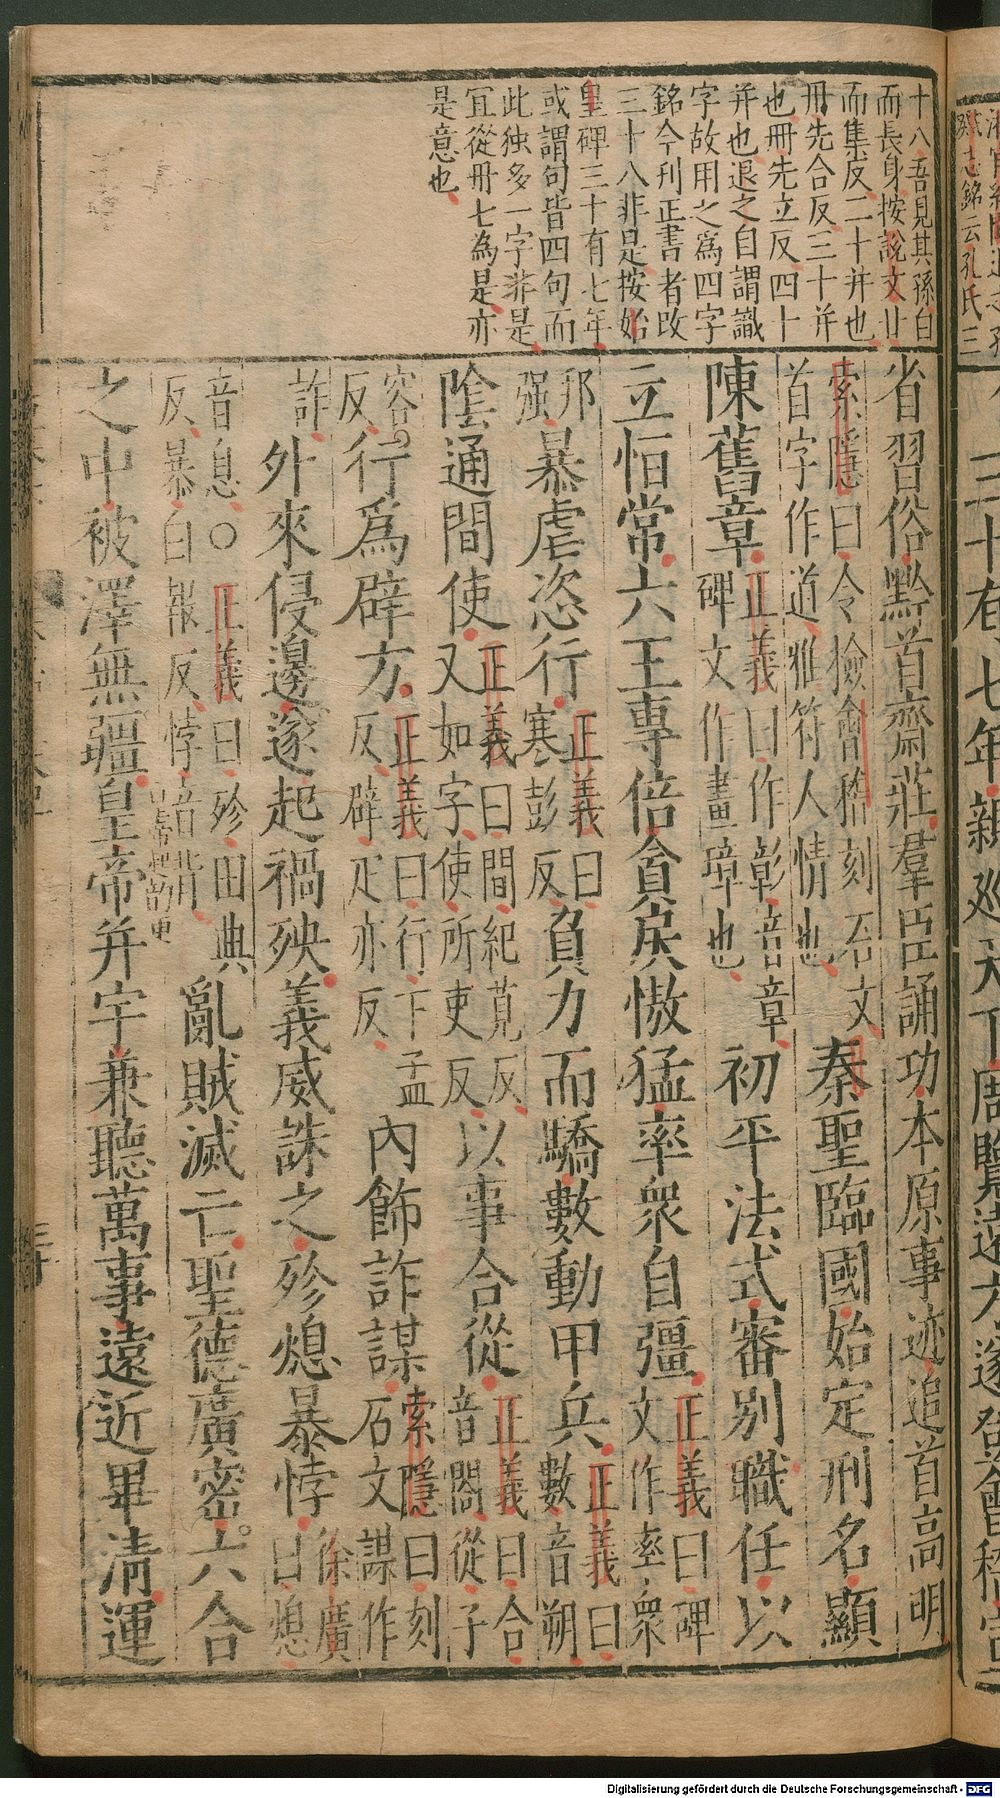 墓志銘云孔氏三
十八吾見其孫白
而長身按說文廿
而集反二十并也
卅先合反三十并
也卌先立反四十
并也退之自謂識
字故用之為四字
銘今刊正書者改
三十八非是按始
皇碑三十有七年
或謂句皆四句而
此独多一字非是
冝從卌七為是亦
是意也
三十有七年親巡天下周覽遠方遂登會稽宣
省習俗黔首齋莊羣臣誦功本原事迹追首高明
索隱曰今撿會稽刻石文首字作道雅符人情也秦聖臨國始定刑名顯
陳舊章正義曰作彰音章碑文作畫璋也初平法式審別職任以
立恒常六王專倍貪戾慠猛率衆自彊正義曰碑文作率衆
邦强暴虐恣行正義曰寒彭反負力而驕數動甲兵正義曰數音朔
陰通間使正義曰間紀莧反又如字使所吏反以事合從正義曰合音閤從子
容反行爲辟方正義曰行下孟反辟疋亦反內飾詐謀索隱曰刻石文謀作
詐外來侵邊遂起禍殃義威誅之殄熄暴悖徐廣曰熄
音息○正義曰殄田典反暴白報反悖音背亂賊滅亡聖德廣密六合
之中被澤無疆皇帝并宇兼聽萬事遠近畢清運
Digitalisierung gefördert durch die Deutsche Forschungsgemeinschaft - DFG